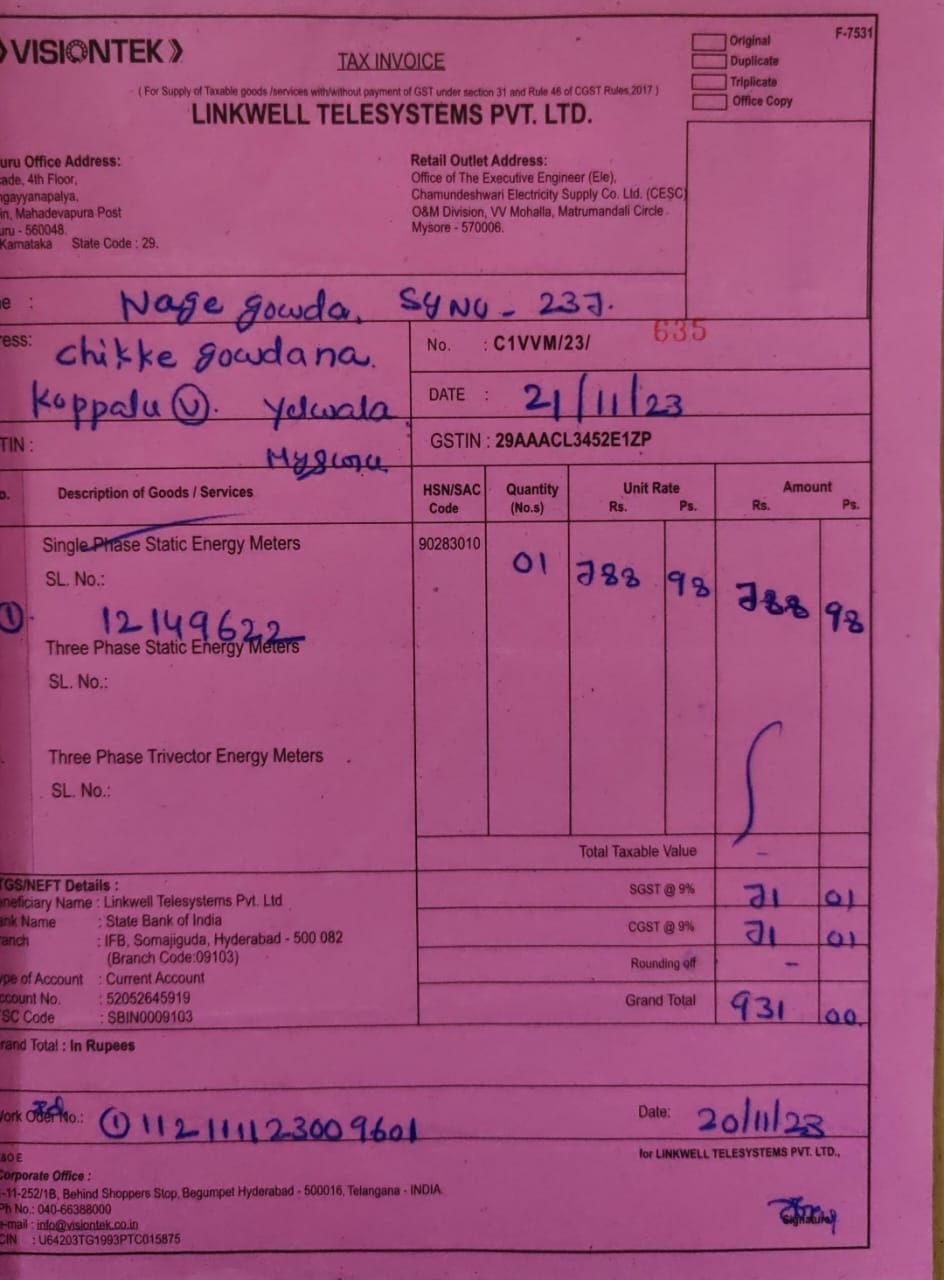 VISIONTEK
F-7531
TAX INVOICE
Original
Duplicate
Triplicate
Office Copy
( For Supply of Taxable goods /services with/without payment of GST under section 31 and Rule 46 of CGST Rules,2017 )
LINKWELL TELESYSTEMS PVT. LTD.
uru Office Address:
ade, 4th Floor,
ngayyanapalya,
in, Mahadevapura Post
uru - 560048.
Karnataka State Code : 29.
Retail Outlet Address:
Office of The Executive Engineer (Ele),
Chamundeshwari Electricity Supply Co. Ltd. (CESC)
O&M Division, VV Mohalla, Matrumandali Circle
Mysore - 570006.
e : Nage gowda, SY NO - 237.
ress: Chikke gowdana.
Koppalu (V). Yelwala
Mysuru
No. : C1VVM/23/ 635
DATE : 21/11/23
TIN :
GSTIN : 29AAACL3452E1ZP
o. Description of Goods / Services HSN/SAC Code Quantity (No.s) Unit Rate Rs. Ps. Amount Rs. Ps.
Single Phase Static Energy Meters 90283010 01 788 98 788 98
SL. No.:
1 12149622
Three Phase Static Energy Meters
SL. No.:
Three Phase Trivector Energy Meters
SL. No.:
Total Taxable Value -
SGST @ 9% 71 01
CGST @ 9% 71 01
Rounding off -
Grand Total 931 00
TGS/NEFT Details :
neficiary Name : Linkwell Telesystems Pvt. Ltd
ank Name : State Bank of India
ranch : IFB, Somajiguda, Hyderabad - 500 082
(Branch Code:09103)
ype of Account : Current Account
ccount No. : 52052645919
SC Code : SBIN0009103
rand Total : In Rupees
Work Oder No.: 1 112111123009601
Date: 20/11/23
&O E
for LINKWELL TELESYSTEMS PVT. LTD.,
Corporate Office :
-11-252/1B, Behind Shoppers Stop, Begumpet Hyderabad - 500016, Telangana - INDIA
Ph No.: 040-66388000
e-mail : info@visiontek.co.in
CIN : U64203TG1993PTC015875
Signature